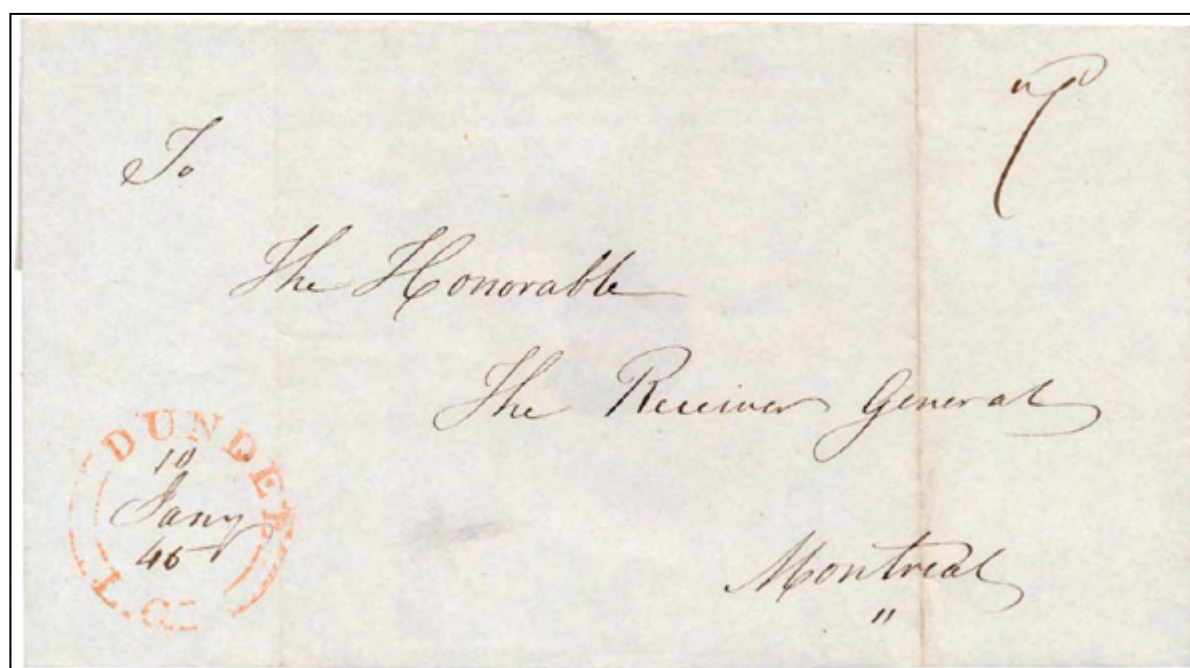 7
To
The Honorable
The Receiver General
Montreal
"
DUNDEE
10
Jany
45
L.C.